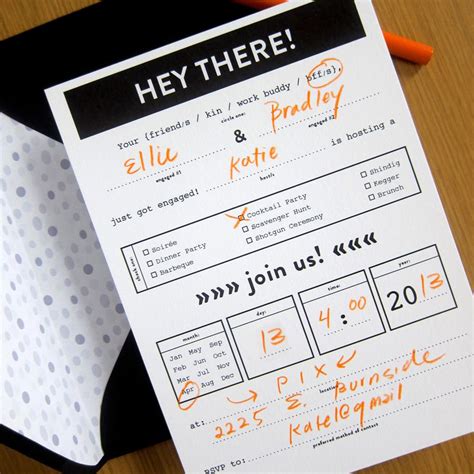 HEY THERE!
Your {friend/s / kin / work buddy / bff/s},
circle one:
Ellie & Bradley
engaged #1 engaged #2
just got engaged! Katie is hosting a
host/s
check one:
Soirée
Dinner Party
Barbeque
Cocktail Party
Scavenger Hunt
Shotgun Ceremony
Shindig
Kegger
Brunch
»»»» join us! ««««
month: day: time: year:
Jan May Sep
Feb Jun Oct
Mar Jul Nov
Apr Aug Dec
13
4:00
2013
PIX
location
at: 2225 E. Burnside
RSVP to: katel@gmail
preferred method of contact